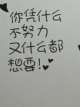 你凭什么
不努力
又什么都
想要!